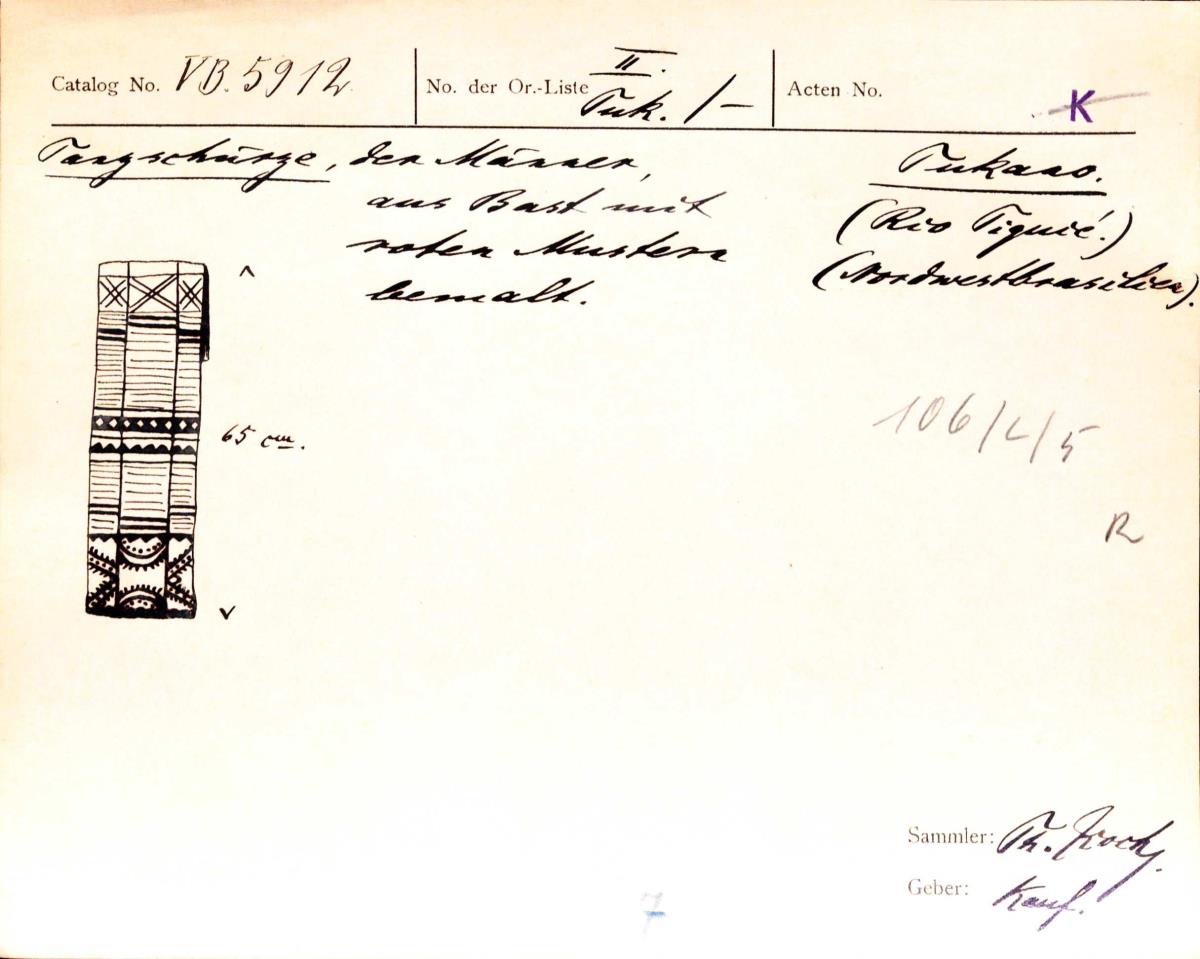 Catalog No. VB. 5912
No. der Or.-Liste II. Tuk. 1-
Acten No.
K
Tanzschürze, der Männer,
aus Bast mit
roten Mustern
bemalt.
Tukano.
(Rio Tiquié.)
(Nordwestbrasilien).
65 cm.
106/L/5
R
Sammler: Th. Koch.
Geber: Kauf.
7